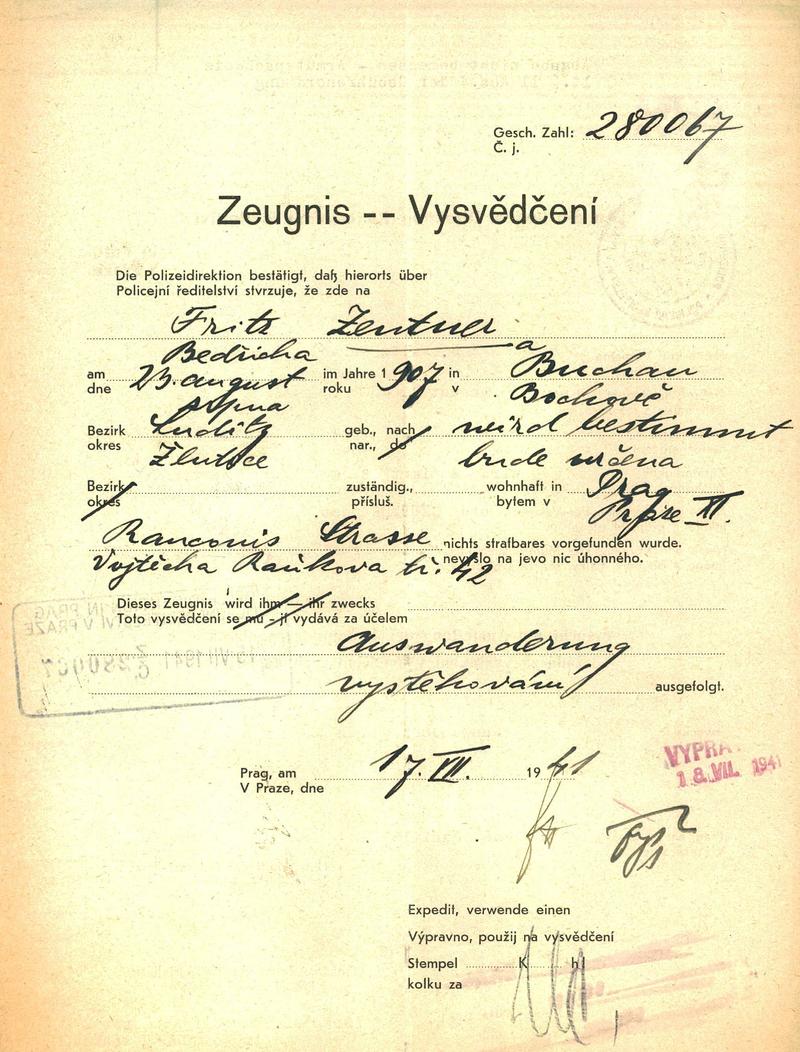 Gesch. Zahl: 280067
Č. j.
Zeugnis -- Vysvědčení
Die Polizeidirektion bestätigt, daß hierorts über
Policejní ředitelství stvrzuje, že zde na
Fritz Zentner
Bedřicha a
am 23. august im Jahre 1907 in Buchau
dne srpna roku v Bochově
Bezirk Luditz geb., nach wird bestimmt
okres Žlutice nar., do bude určena
Bezirk zuständig., wohnhaft in Prag
okres přísluš. bytem v Praze XI.
Ranconis Strasse nichts strafbares vorgefunden wurde.
Vojtěcha Raňkova tř. 42 nevyšlo na jevo nic úhonného.
Dieses Zeugnis wird ihm — ihr zwecks
Toto vysvědčení se mu - jí vydává za účelem
Auswanderung
vystěhování ausgefolgt.
Prag, am 17. VII. 1941
V Praze, dne
VYPRA
18. VII. 1941
Expedit, verwende einen
Výpravno, použij na vysvědčení
Stempel K hl
kolku za